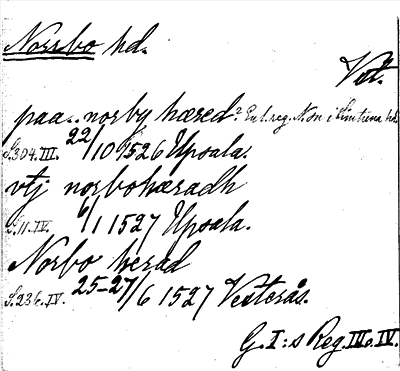 Norrbo hd.
Vst.
paa.. norby hæred? Enl. reg. N:on i Simtuna hd.
S.304.III. 22/10 1526 Upsala.
vtj norbohæradh
S.11.IV. 6/1 1527 Upsala.
Norbo herad
S.236.IV. 25-27/6 1527 Vesterås.
G. I:s Reg. III o. IV.